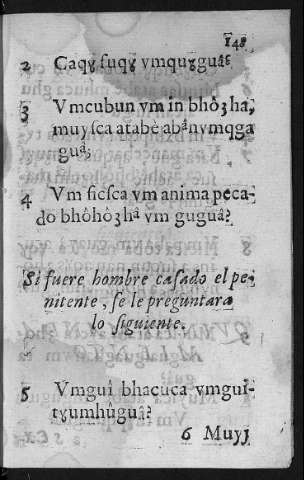 148
2 Caqɣ ſuqɣ vmquɣguâ
3 Vmcubun vm in bhôʒha,
muyſca atabe abânvmqga
guâ;
4 Vm ſicſca vm anima peca-
do bhôhôʒhâ vm guguâ?
Si fuere hombre caſado el pe-
nitente, ſe le preguntara
lo ſiguiente.
5 Vmguî bhacuca vmguî-
tɣumhûguâ?
6 Muyſ